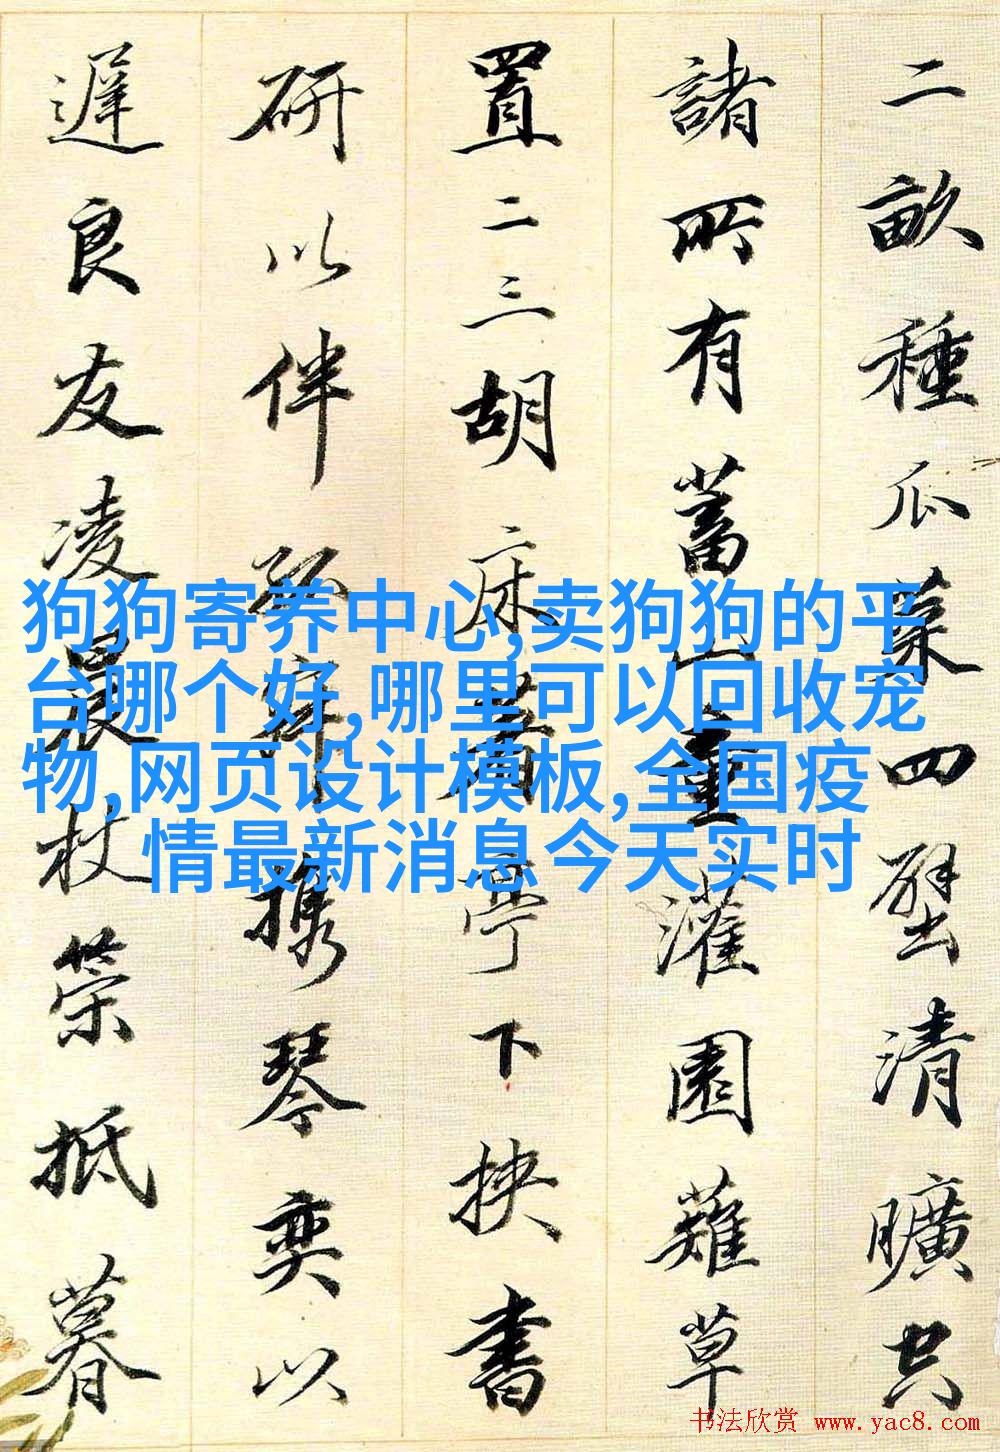 二畝種瓜菜四壁清曠空
諸所有蓄山童灌園薙草
置二三胡床着亭下挾書
研以伴孤寂攜琴奕以
遲良友凌晨杖策抵暮
狗狗寄养中心,卖狗狗的平
台哪个好,哪里可以回收宠
物,网页设计模板,全国疫
情最新消息今天实时
书法欣赏 www.yac8.com